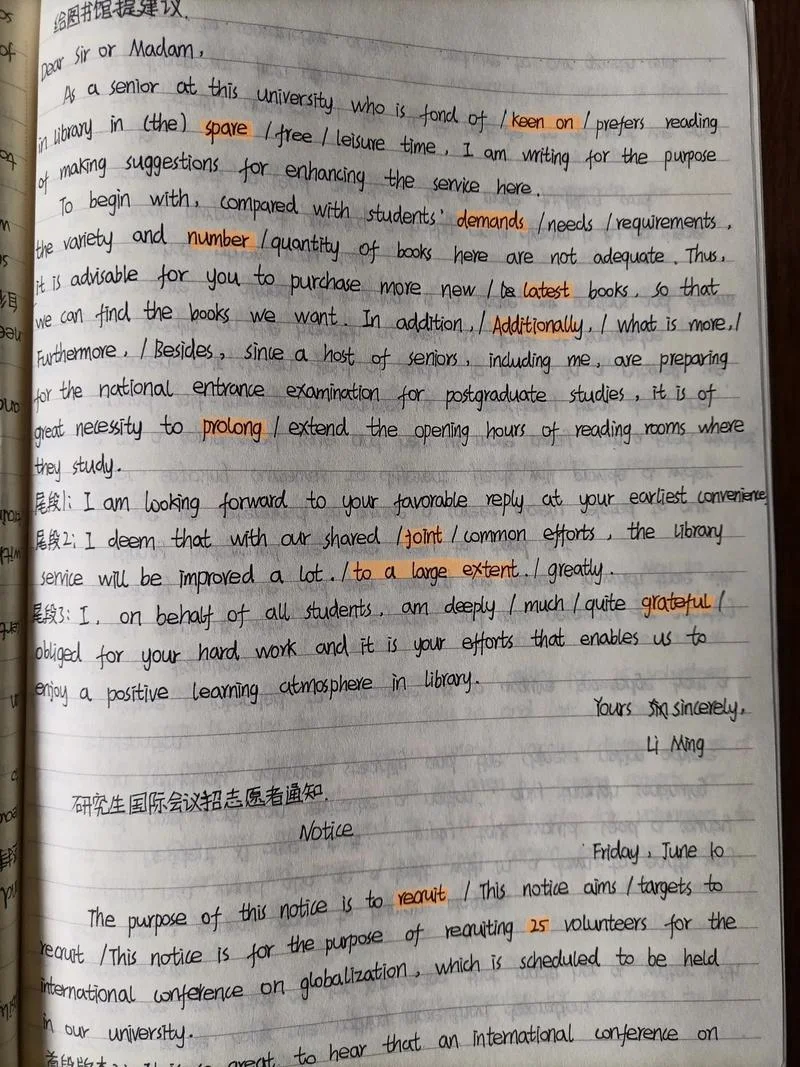 给图书馆提建议.
Dear Sir or Madam,
As a senior at this university who is fond of / keen on / prefers reading
in library in (the) spare / free / leisure time, I am writing for the purpose
of making suggestions for enhancing the service here.
To begin with, compared with students' demands / needs / requirements,
the variety and number / quantity of books here are not adequate. Thus,
it is advisable for you to purchase more new / latest books, so that
we can find the books we want. In addition, / Additionally, / what is more, /
Furthermore, / Besides, since a host of seniors, including me, are preparing
for the national entrance examination for postgraduate studies, it is of
great necessity to prolong / extend the opening hours of reading rooms where
they study.
尾段1: I am looking forward to your favorable reply at your earliest convenience
尾段2: I deem that with our shared / joint / common efforts, the library
service will be improved a lot. / to a large extent. / greatly.
尾段3: I, on behalf of all students, am deeply / much / quite grateful /
obliged for your hard work and it is your efforts that enables us to
enjoy a positive learning atmosphere in library.
Yours sincerely,
Li Ming
研究生国际会议招志愿者通知.
Notice
Friday, June 10
The purpose of this notice is to recruit / This notice aims / targets to
recruit / This notice is for the purpose of recruiting 25 volunteers for the
international conference on globalization, which is scheduled to be held
in our university.
great to hear that an international conference on